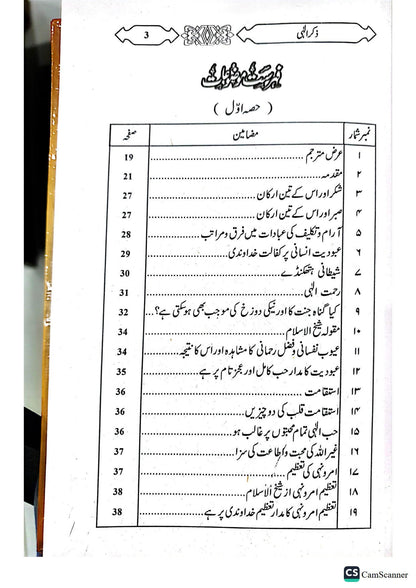 ذکر الٰہی 3
فہرست موضوعات
( حصہ اوّل )
نمبر شمار مضامین صفحہ
۱ عرض مترجم 19
۲ مقدمہ 21
۳ شکر اور اس کے تین ارکان 27
۴ صبر اور اس کے تین ارکان 27
۵ آرام و تکلیف کی عبادات میں فرق و مراتب 28
۶ عبودیت انسانی پر کفالت خداوندی 29
۷ شیطانی ہتھکنڈے 30
۸ رحمت الٰہی 31
۹ کیا گناہ جنت کا اور نیکی دوزخ کی موجب بھی ہو سکتی ہے؟ 32
۱۰ مقولہ شیخ الاسلام 34
۱۱ عیوب نفسانی و فضل رحمانی کا مشاہدہ اور اس کا نتیجہ 34
۱۲ عبودیت کا مدار حب کامل اور عجز تام پر ہے 35
۱۳ استقامت 36
۱۴ استقامت قلب کی دو چیزیں 36
۱۵ حب الٰہی تمام محبتوں پر غالب ہو 36
۱۶ غیر اللہ کی محبت و اطاعت کی سزا 37
۱۷ امر و نہی کی تعظیم 37
۱۸ تعظیم امر و نہی از شیخ الاسلام 38
۱۹ تعظیم امر و نہی کا مدار تعظیم خداوندی پر ہے 38
CS CamScanner